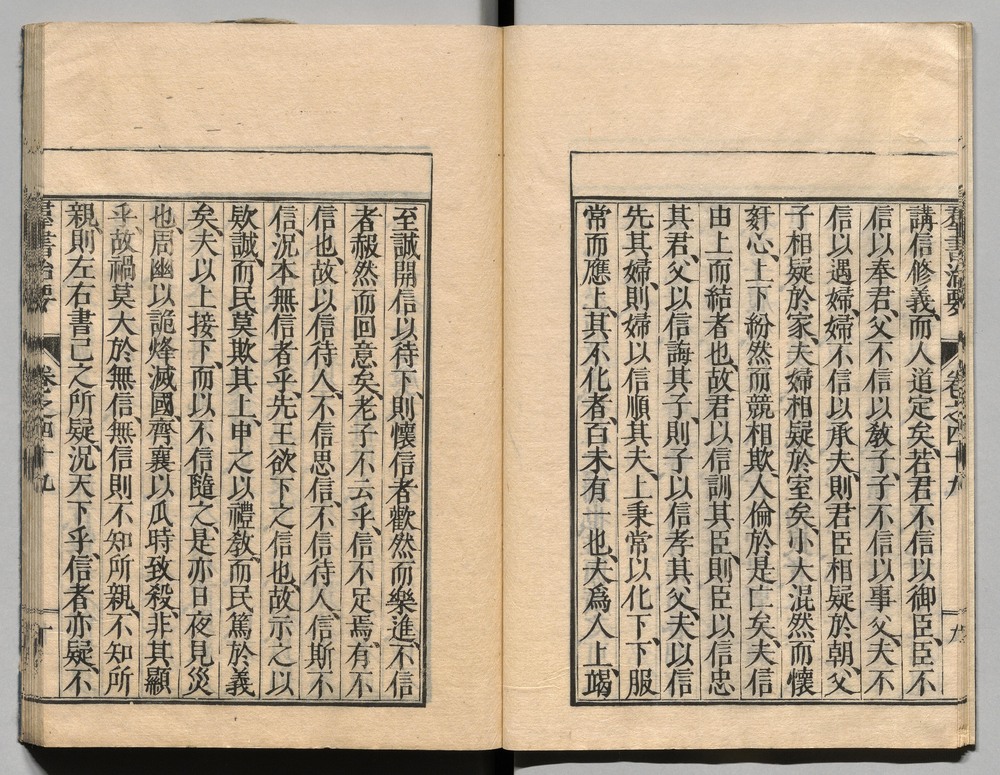 群書治要 卷之四十九 九
講信修義、而人道定矣、若君不信以御臣、臣不
信以奉君、父不信以教子、子不信以事父、夫不
信以遇婦、婦不信以承夫、則君臣相疑於朝、父
子相疑於家、夫婦相疑於室矣、小大混然而懷
姧心、上下紛然而競相欺、人倫於是亡矣、夫信
由上而結者也、故君以信訓其臣、則臣以信忠
其君、父以信誨其子、則子以信孝其父、夫以信
先其婦、則婦以信順其夫、上秉常以化下、下服
常而應上、其不化者、百未有一也、夫爲人上、竭
至誠開信以待下、則懷信者歡然而樂進、不信
者赧然而回意矣、老子不云乎、信不足焉、有不
信也、故以信待人、不信思信、不信待人、信斯不
信、況本無信者乎、先王欲下之信也、故示之以
欵誠、而民莫欺其上、申之以禮教、而民篤於義
矣、夫以上接下、而以不信隨之、是亦日夜見災
也、周幽以詭烽滅國、齊襄以瓜時致殺、非其顯
乎、故禍莫大於無信、無信則不知所親、不知所
親、則左右書己之所疑、況天下乎、信者亦疑、不
群書治要 卷之四十九 十